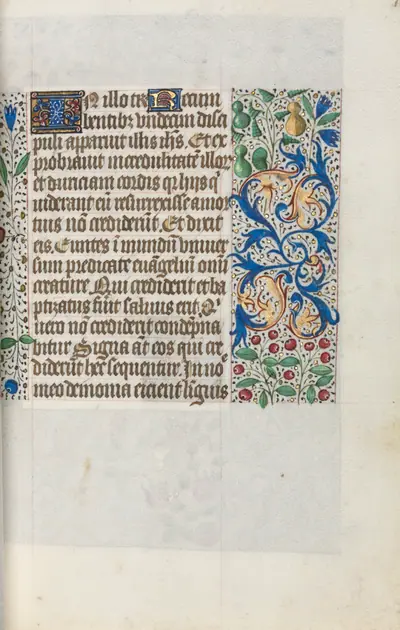 In illo tꝑe Recum
bentibꝫ vndecim disci
pulis apparuit illis ihs̄. Et ex
probrauit incredulitatē illoꝝ
et duriciam cordis qꝛ hijs q̄
uiderant eū resurrexisse a mor
tuis nō crediderūt. Et dixit
eis. Euntes ī mundū vniuer
sum predicate euāgeliū omī
creature. Qui crediderit et ba
ptizatus fuīt saluus erit. Q̄
uero nō crediderit condēpna
bitur. Signa aūt eos qui cre
diderūt hec sequentur. In nōe
meo demonia eicient linguis